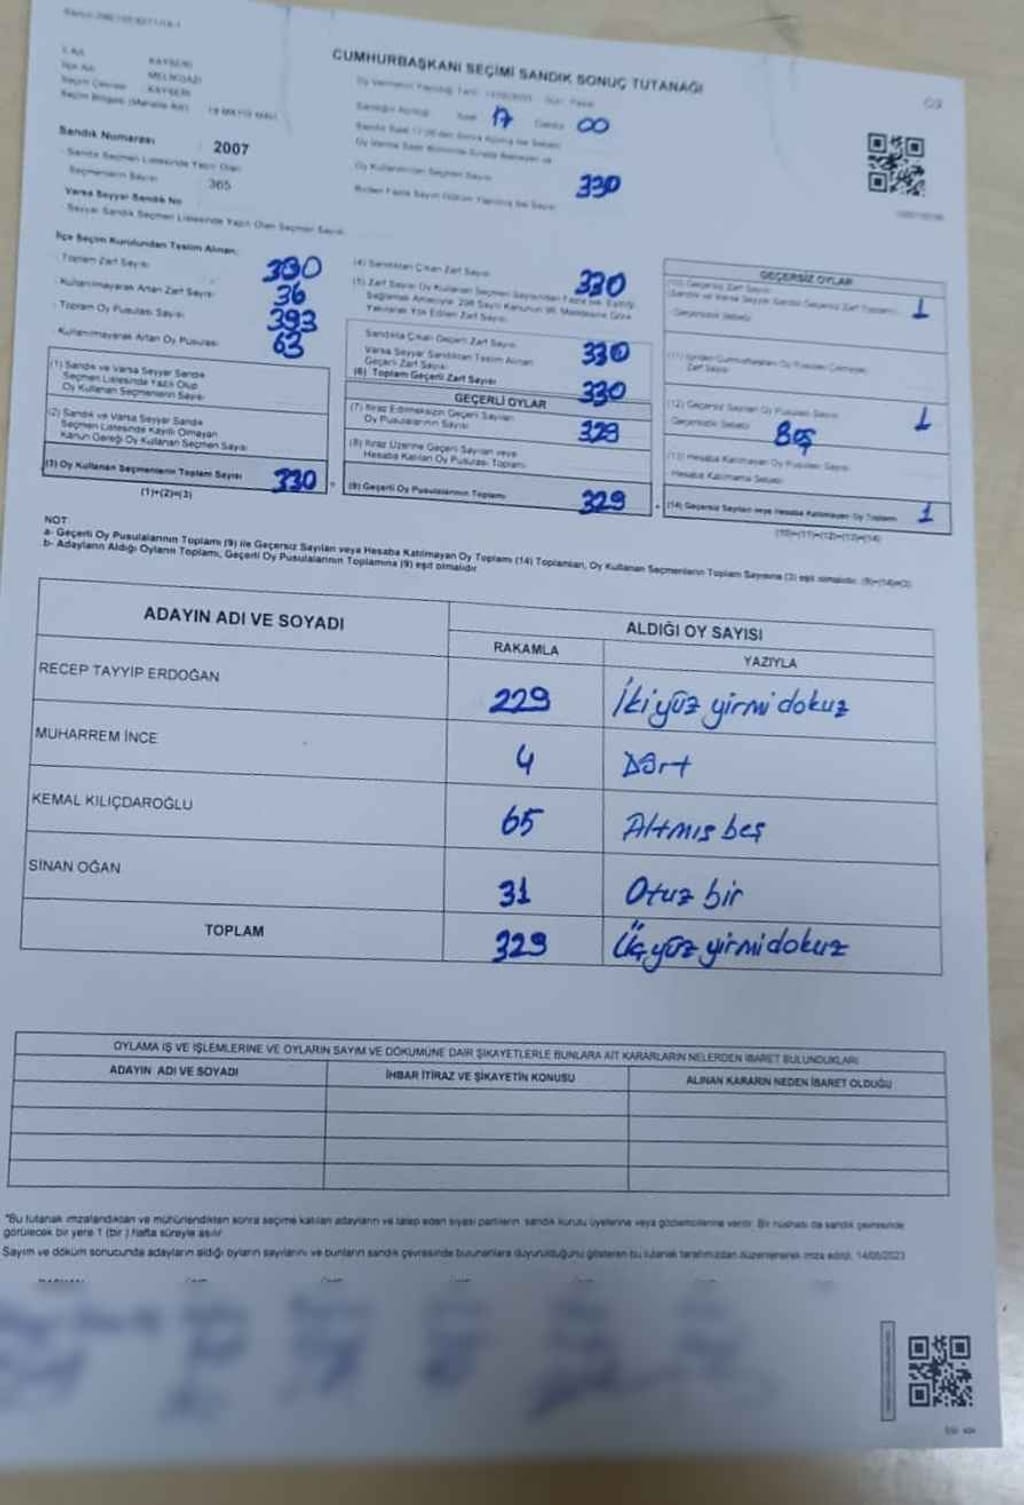 CUMHURBAŞKANI SEÇİMİ SANDIK SONUÇ TUTANAĞI
İl Adı KAYSERİ
İlçe Adı MELİKGAZİ
Seçim Çevresi KAYSERİ
Seçim Bölgesi (Mahalle Adı) 19 MAYIS MAH.
17 00
Sandık Numarası 2007
Sandık Seçmen Listesinde Yazılı Olan
Seçmenlerin Sayısı 365
Varsa Seyyar Sandık No
Seyyar Sandık Seçmen Listesinde Yazılı Olan Seçmen Sayısı
Oy Kullanılan Seçmen Sayısı 330
İlçe Seçim Kurulundan Teslim Alınan:
Toplam Zarf Sayısı 330
Kullanılmayarak Artan Zarf Sayısı 36
Toplam Oy Pusulası Sayısı 393
Kullanılmayarak Artan Oy Pusulası 63
(1) Sandık ve Varsa Seyyar Sandık
Seçmen Listesinde Yazılı Olup
Oy Kullanan Seçmenlerin Sayısı
(2) Sandık ve Varsa Seyyar Sandık
Seçmen Listesinde Kayıtlı Olmayan
Kanun Gereği Oy Kullanan Seçmen Sayısı
(3) Oy Kullanan Seçmenlerin Toplam Sayısı 330
(1)+(2)=(3)
(4) Sandıktan Çıkan Zarf Sayısı 330
Sandıkta Çıkan Geçerli Zarf Sayısı 330
Varsa Seyyar Sandıktan Teslim Alınan
Geçerli Zarf Sayısı
(6) Toplam Geçerli Zarf Sayısı 330
GEÇERLİ OYLAR
(7) İtiraz Edilmeksizin Geçerli Sayılan
Oy Pusulalarının Sayısı 329
(8) İtiraz Üzerine Geçerli Sayılan veya
Hesaba Katılan Oy Pusulası Toplamı
(9) Geçerli Oy Pusulalarının Toplamı 329
GEÇERSİZ OYLAR
1
(12) Geçersiz Sayılan Oy Pusulası Sayısı 1
Boş
(13) Hesaba Katılmayan Oy Pusulası Sayısı
Hesaba Katılmama Sebebi
(14) Geçersiz Sayılan veya Hesaba Katılmayan Oy Toplamı 1
(10)+(11)+(12)+(13)=(14)
NOT:
a- Geçerli Oy Pusulalarının Toplamı (9) ile Geçersiz Sayılan veya Hesaba Katılmayan Oy Toplamı (14) Toplamları, Oy Kullanan Seçmenlerin Toplam Sayısına (3) eşit olmalıdır. (9)+(14)=(3)
b- Adayların Aldığı Oyların Toplamı, Geçerli Oy Pusulalarının Toplamına (9) eşit olmalıdır
ADAYIN ADI VE SOYADI ALDIĞI OY SAYISI
RAKAMLA YAZIYLA
RECEP TAYYİP ERDOĞAN 229 İkiyüz yirmi dokuz
MUHARREM İNCE 4 Dört
KEMAL KILIÇDAROĞLU 65 Altmış beş
SİNAN OĞAN 31 Otuz bir
TOPLAM 329 Üçyüz yirmi dokuz
OYLAMA İŞ VE İŞLEMLERİNE VE OYLARIN SAYIM VE DÖKÜMÜNE DAİR ŞİKAYETLERLE BUNLARA AİT KARARLARIN NELERDEN İBARET BULUNDUKLARI
ADAYIN ADI VE SOYADI İHBAR İTİRAZ VE ŞİKAYETİN KONUSU ALINAN KARARIN NEDEN İBARET OLDUĞU
*Bu tutanak imzalandıktan ve mühürlendikten sonra seçime katılan adayların ve talep eden siyasi partilerin, sandık kurulu üyelerine veya gözlemcilerine verilir. Bir nüshası da sandık çevresinde
görülecek bir yere 1 (bir) hafta süreyle asılır
Sayım ve döküm sonucunda adayların aldığı oyların sayılarını ve bunların sandık çevresinde bulunanlara duyurulduğunu gösteren bu tutanak tarafımızdan düzenlenerek imza edildi. 14/05/2023